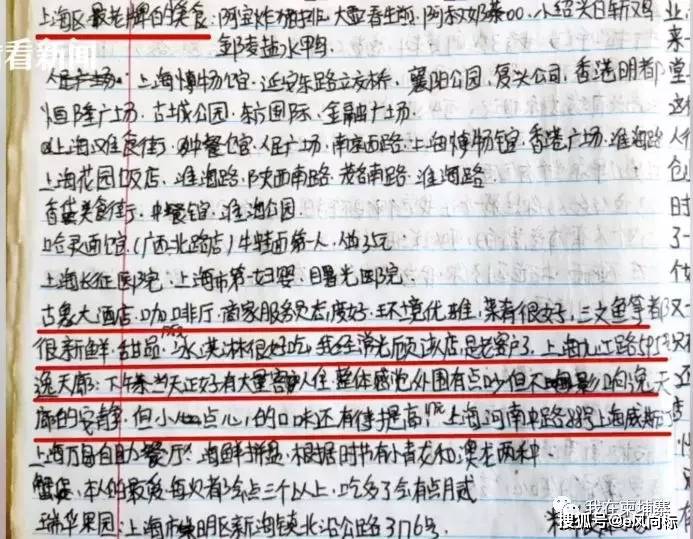 看看新闻
上海区最老牌的美食:阿宝炸猪排.大壶春生煎.阿叔奶茶00.小绍兴白斩鸡
盐水鸭
人民广场.上海博物馆.延安东路立交桥.襄阳公园.复兴公司.香港明都
恒隆广场.古城公园.东方国际.金融广场.
上海美食街.中餐馆.人民广场.南京西路.上海博物馆.香港广场.淮海路
上海花园饭店.淮海路.陕西南路.茂名南路.淮海路.
美食街.中餐馆.淮海公园.
哈灵面馆.(广西北路店)牛蛙面第一人.做
上海长征医院.上海市第一妇婴.曙光医院.
古象大酒店.咖啡厅.商家服务员态度好.环境优雅.菜肴很好.三文鱼等都
很新鲜.甜品.冰淇淋很好吃.我经常光顾该店.是老客户了.上海九江路595号
逸天廊:下午茶当天正好有大量客人住.整体感觉外围有点吵但不影响逸天
廊的安静.但小点心的口味还有待提高.上海河南中路88号上海威斯汀
上海万岛自助餐厅:海鲜拼盘.根据时节有小青龙和澳龙两种
蟹盖.本人的最爱每次都会点三个以上.吃多了会有点月贰
瑞华果园:上海市崇明区新海镇北沿公路3176号.
我在柬埔寨
搜狐号@风向标